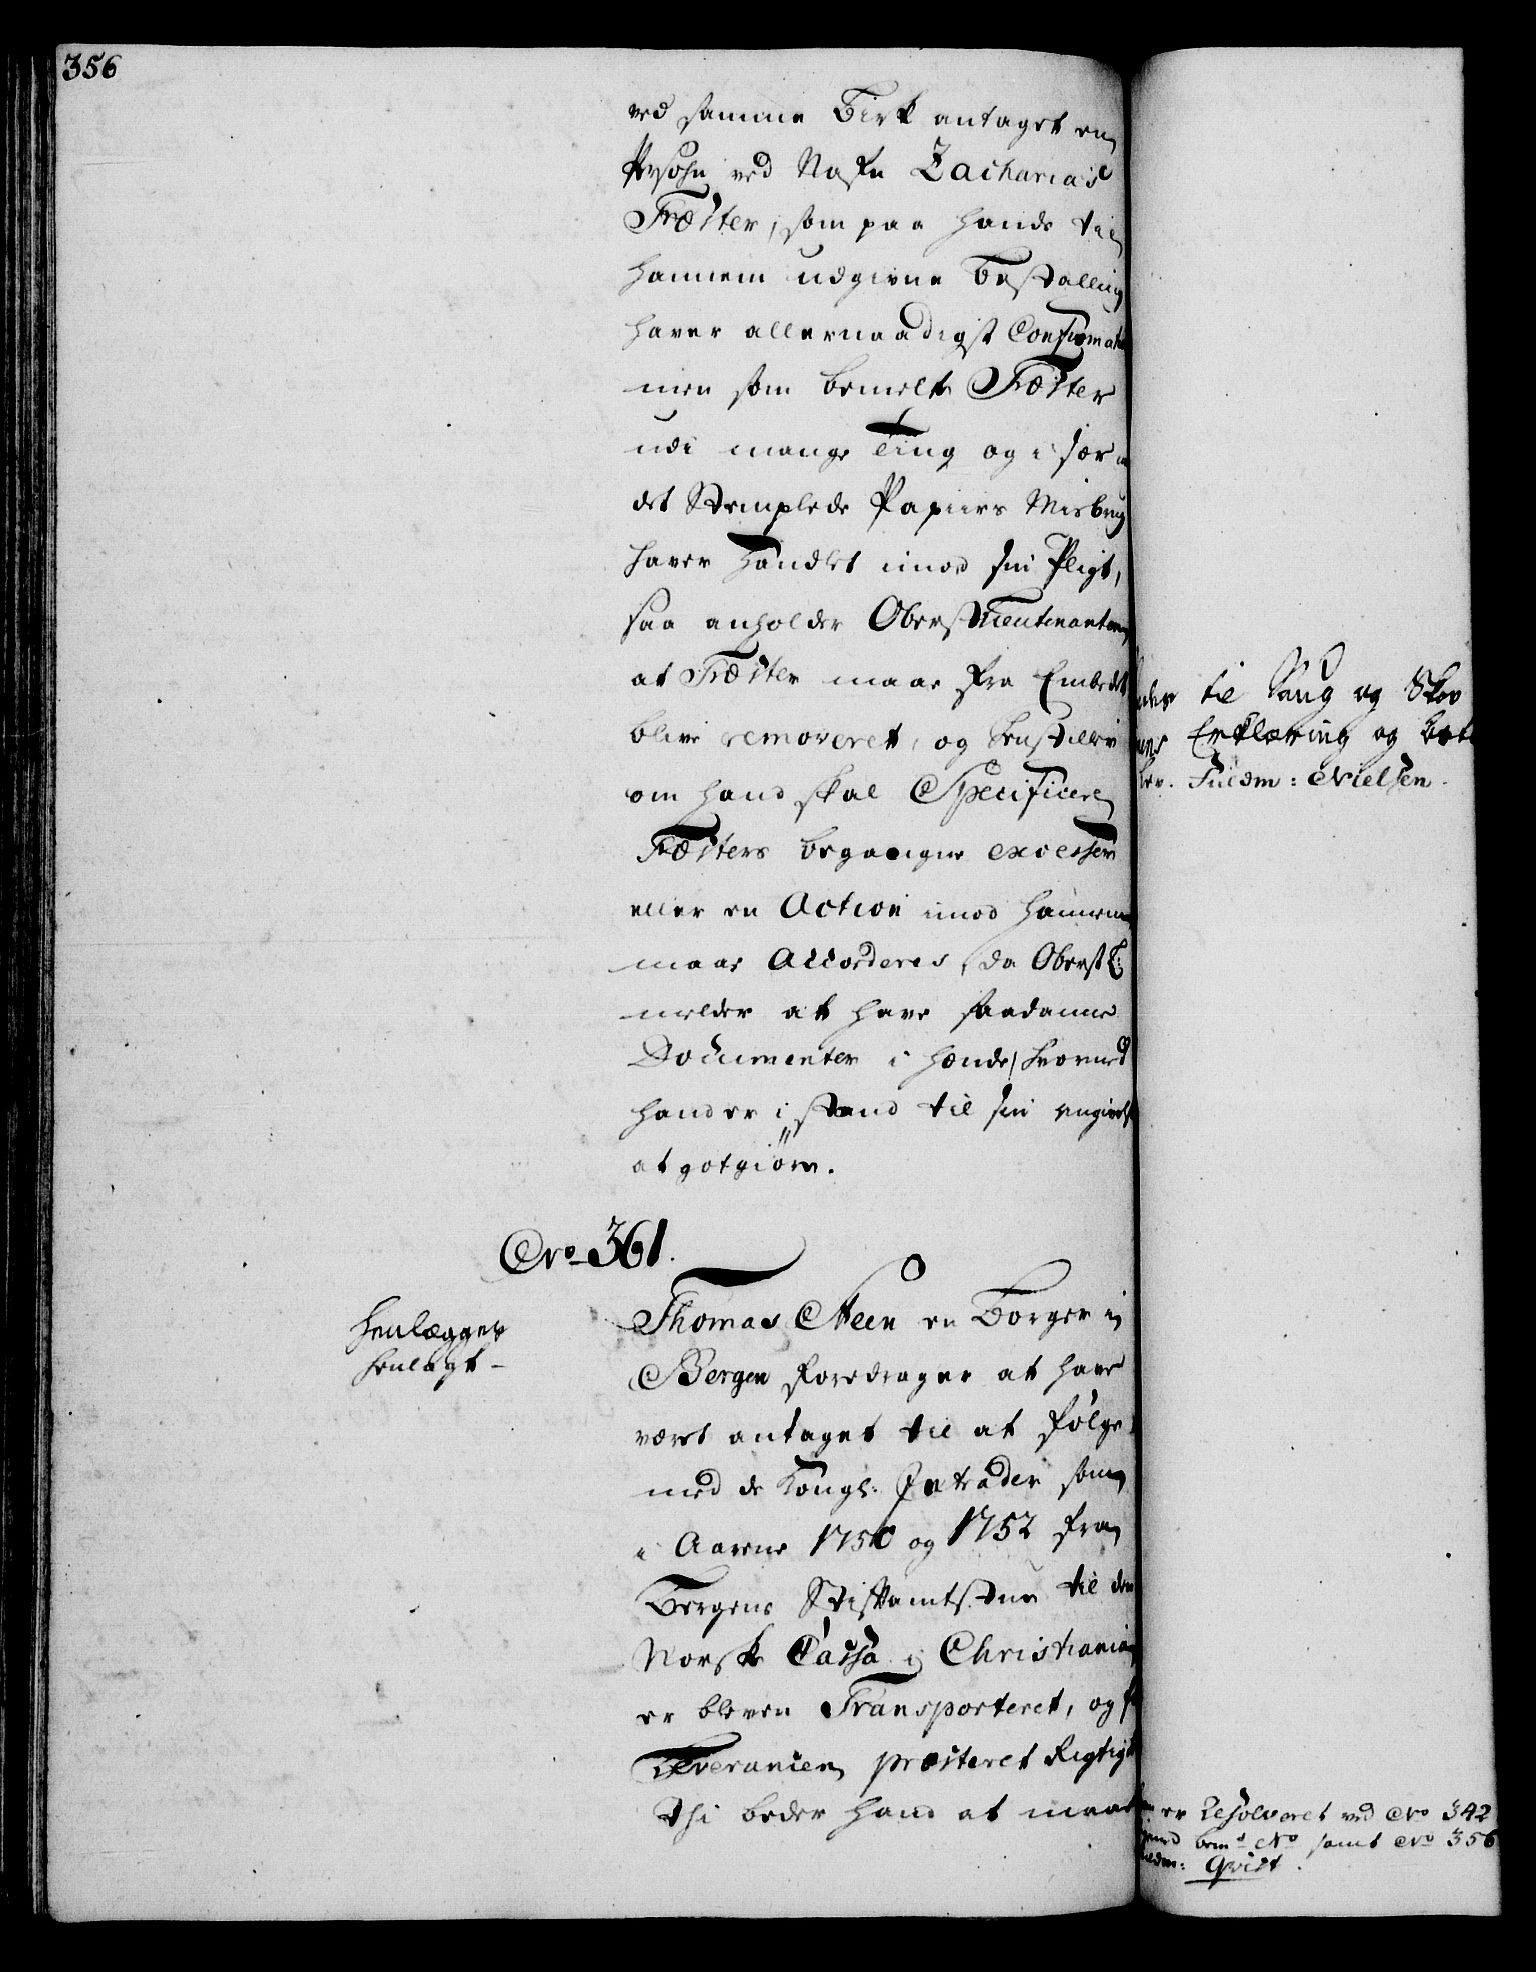 356
ved samme Birk antaget en
Persohn ved Nafn Zacharias
Træster, som paa hands til
hannem udgivne Bestalling
haver allernaadigst Confirmati
men som bemelte Træster
udi mange Ting og i sær
det Stemplede Papiirs Misbrug
haver handlet imod sin Pligt,
saa anholder Oberstlieutenanten
at Træster maae fra Embedet
blive removeret, og
om hand skal Specificere
Træsters begangne excesser
eller en Action imod hannem
maae Accorderes, da Oberst L:
melder at have saadanne
Documenter i hænde, hvormed
hand er i stand til sin angivelse
at gotgiøre.
No 361.
Henlægges
henlagt -
Thomas Steen en Borger i
Bergen foredrager at have
været antaget til at følge
med de Kongl: Intrader som
i Aarene 1750 og 1752 fra
Bergens Stiftamtstue til den
Norske Cassa i Christiania
er bleven Transporteret, og
Leverancen præsteret Rigtig
thi beder hand at maae
til Saug og Skov
Erklæring og
Fuldm: Nielsen.
er Resolveret ved No 342
bemte No samt No 356
Qvist.